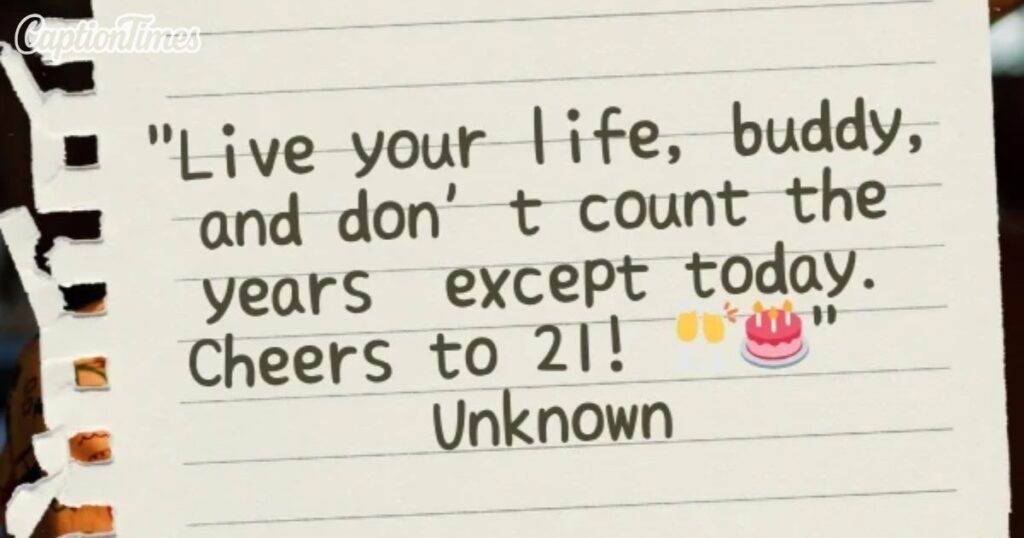 CaptionTimes
"Live your life, buddy,
and don't count the
years except today.
Cheers to 21! 🥂🎂"
Unknown